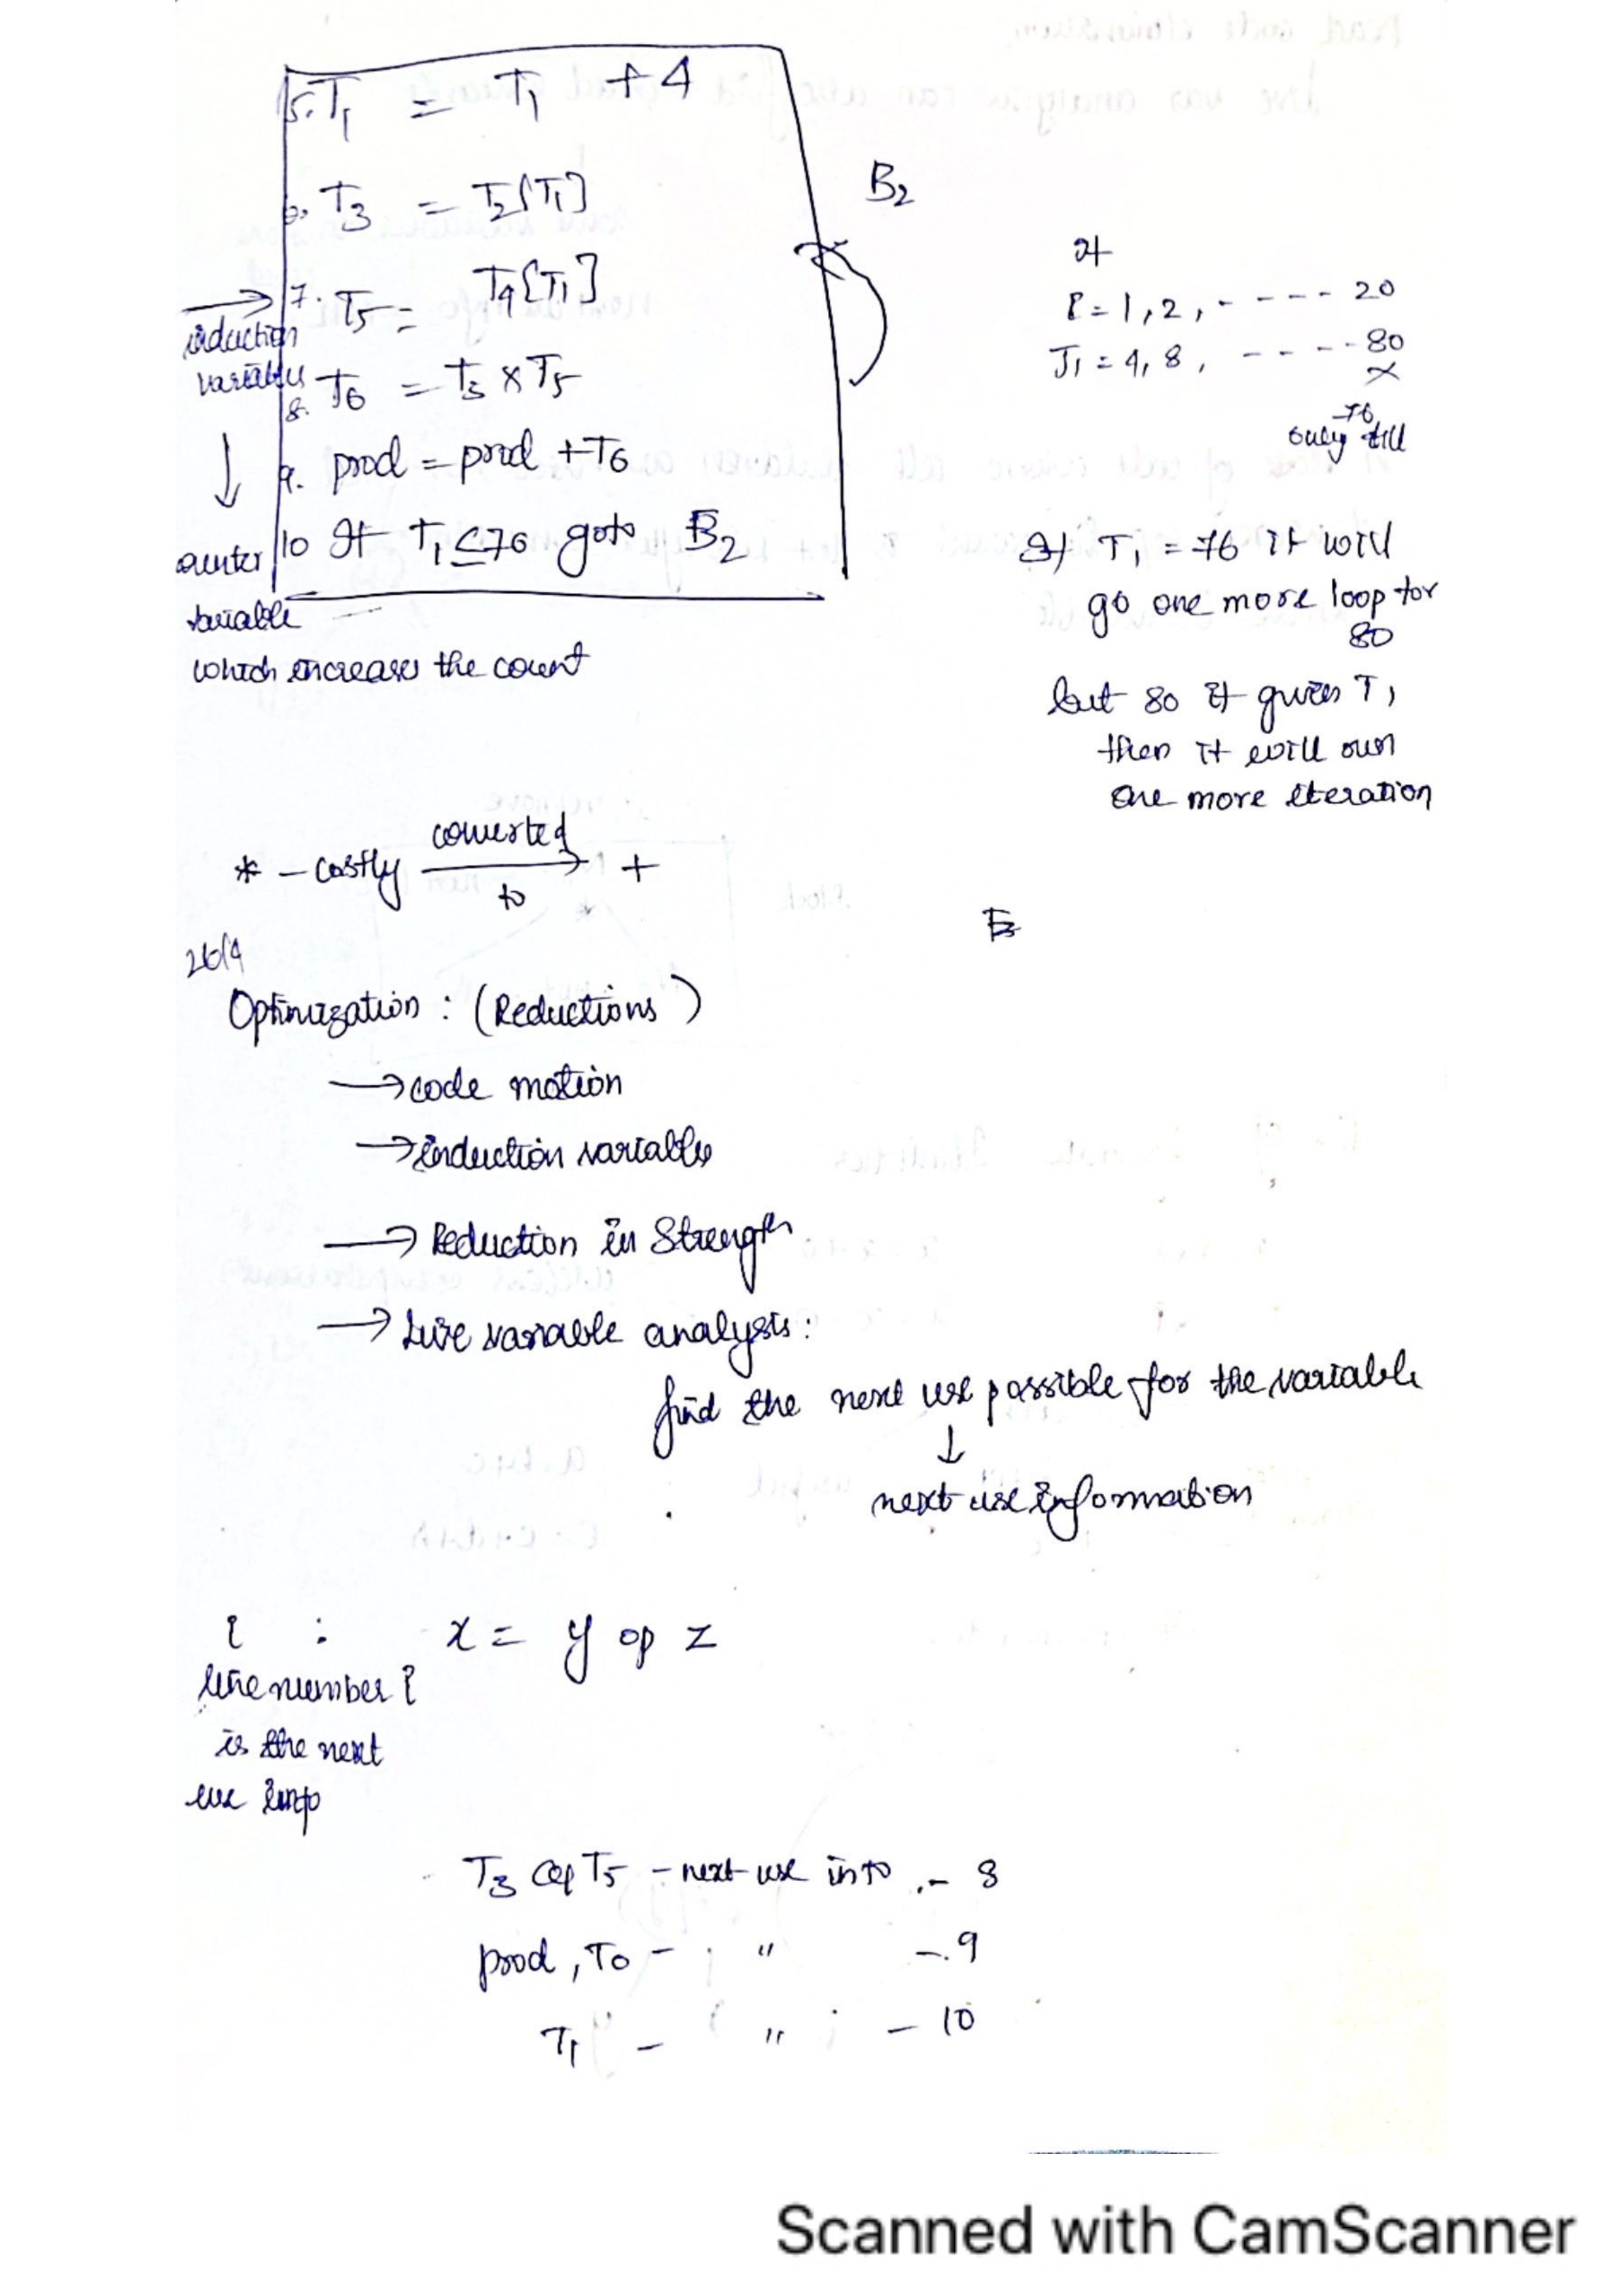 5. T1 = T1 + 4
6. T3 = T2[T1]
7. T5 = T4[T1]
8. T6 = T3 x T5
9. prod = prod + T6
10 If T1 ≤ 76 goto B2
B2
induction
variables
↓
counter
variable
which increases the count
If
i = 1, 2, - - - - 20
T1 = 4, 8, - - - - 80
x
76
only till
If T1 = 76 it will
go one more loop for
80
but 80 if given T1
then it will run
one more iteration
* - costly converted to +
26/4
Optimization : (Reductions)
→ code motion
→ induction variables
→ Reduction in Strength
→ Live variable analysis :
find the next use possible for the variable
↓
next use information
i : x = y op z
line number i
is the next
use info
T3 op T5 - next use info - 8
prod, T6 - " - 9
T1 - " - 10
Scanned with CamScanner